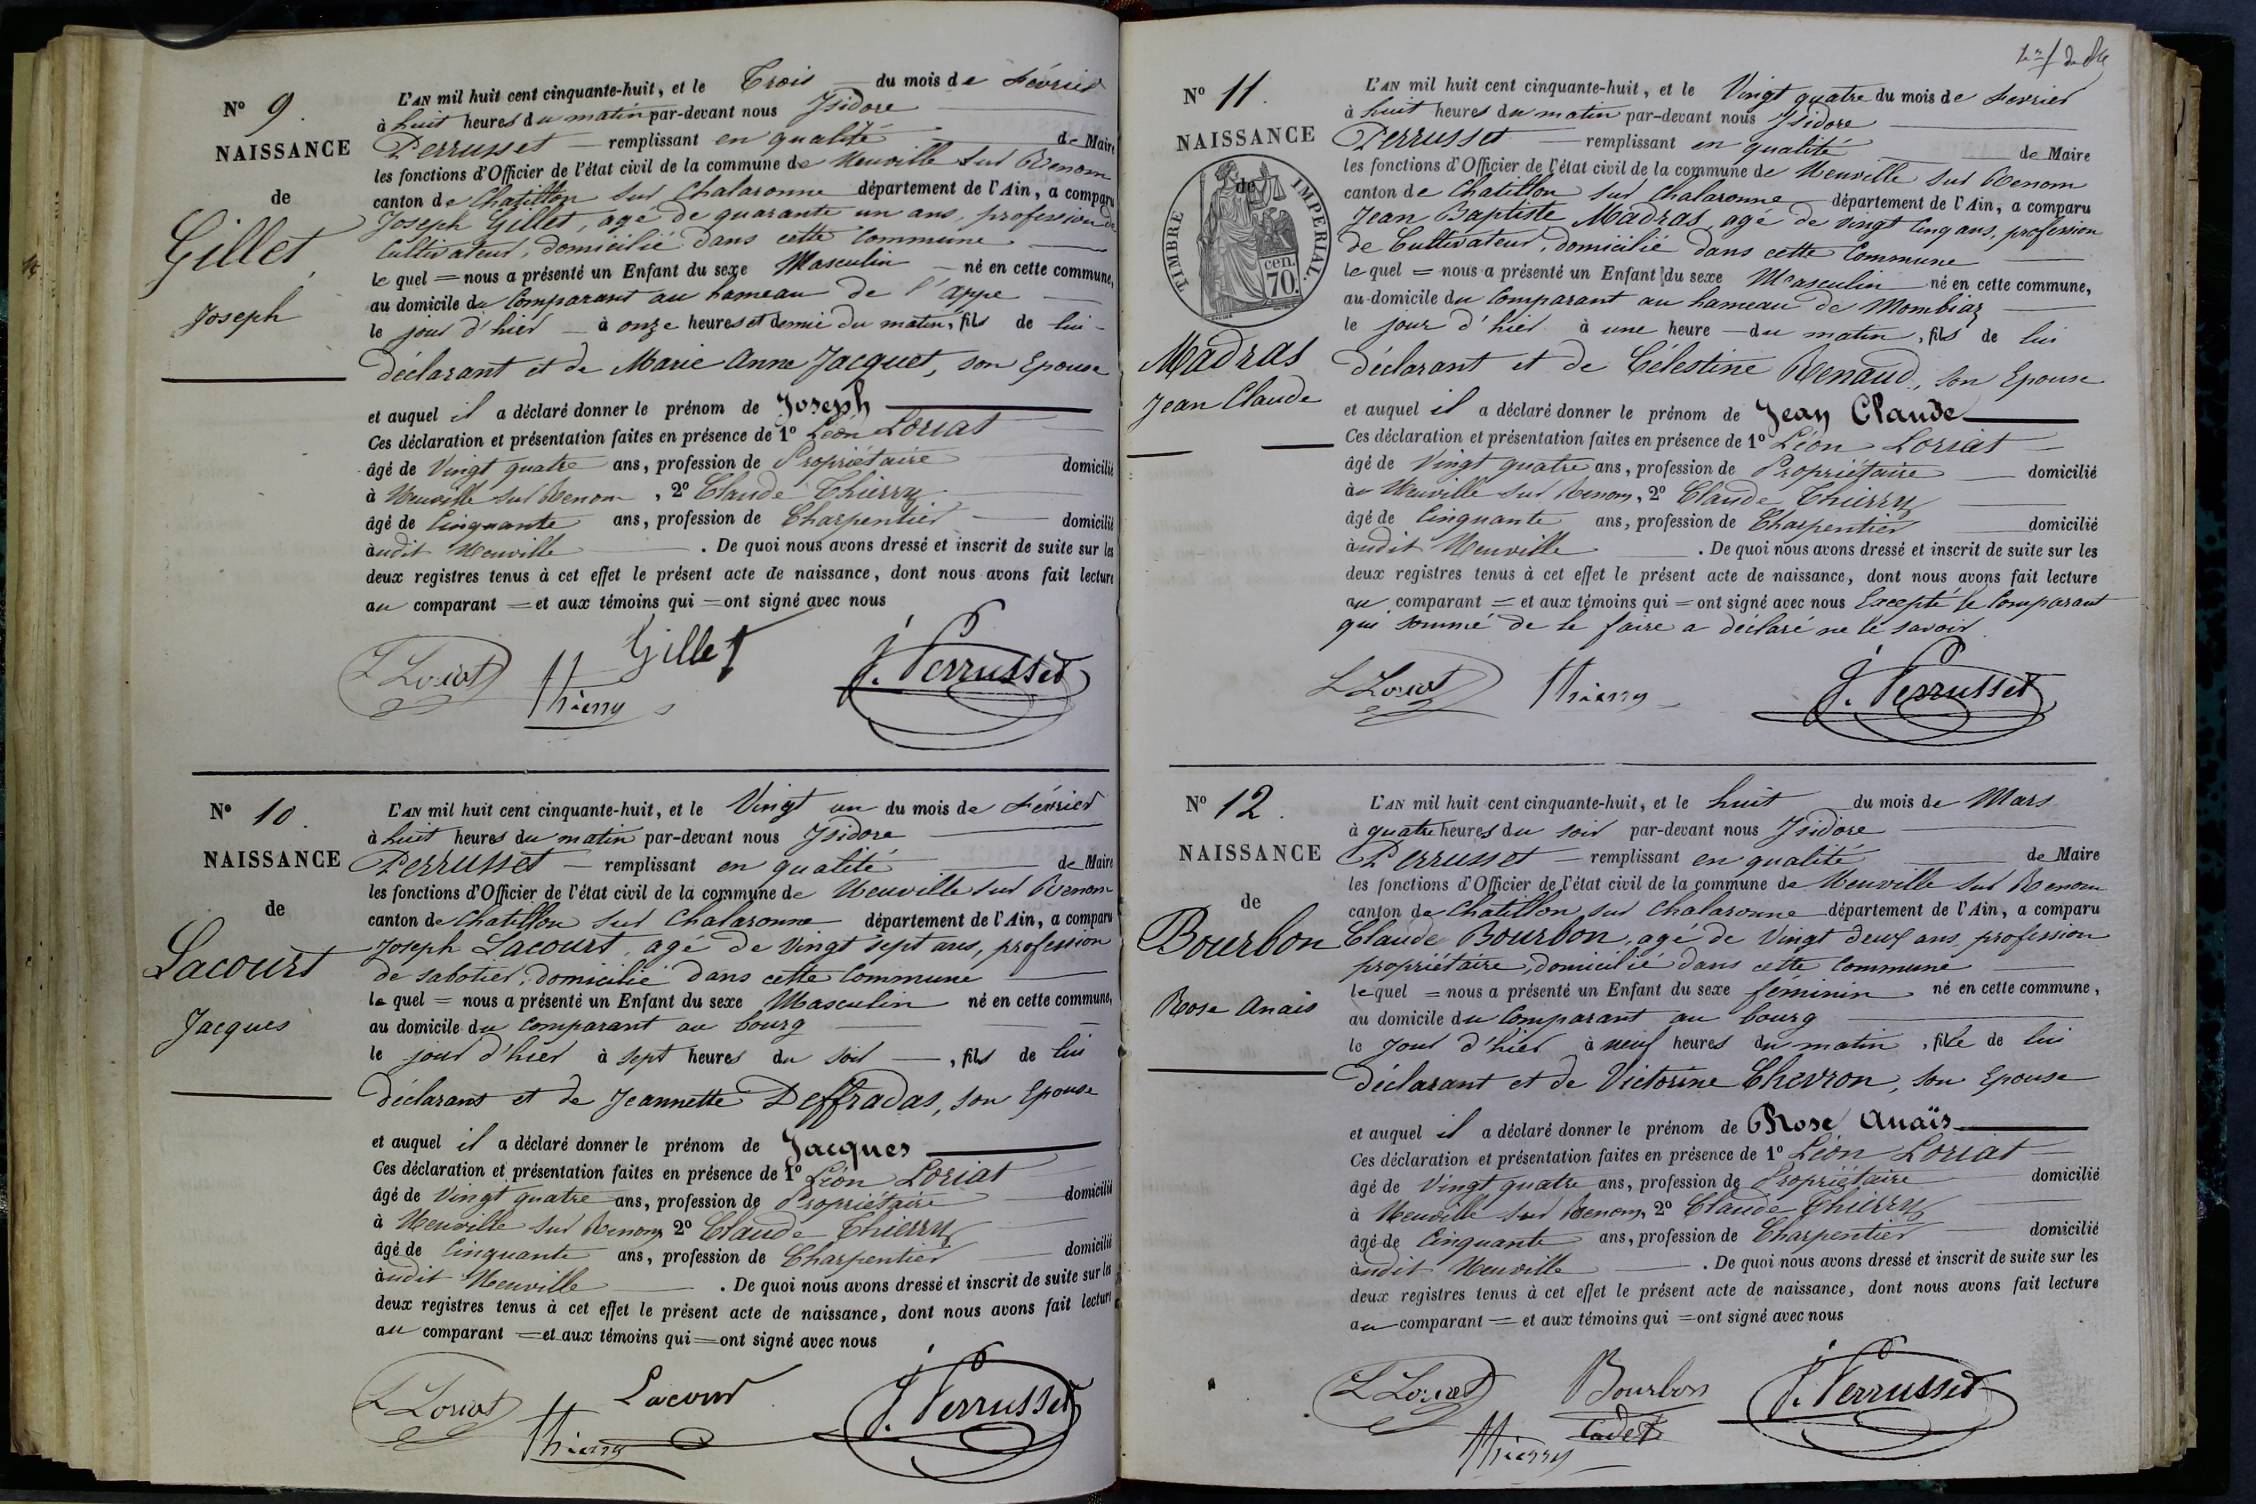 N° 9.
NAISSANCE
de
Gillet
Joseph
L'AN mil huit cent cinquante-huit, et le Trois du mois de Février
à huit heures du matin par-devant nous Isidore
Perrusset remplissant en qualité de Maire
les fonctions d'Officier de l'état civil de la commune de Neuville sur Renom
canton de Chatillon sur Chalaronne département de l'Ain, a comparu
Joseph Gillet, agé de quarante un ans, profession de
Cultivateur, domicilié dans cette Commune
le quel = nous a présenté un Enfant du sexe Masculin né en cette commune,
au domicile du Comparant au hameau de l'appe
le jour d'hier à onze heures et demie du matin, fils de lui
déclarant et de Marie Anne Jacquet, son Epouse
et auquel il a déclaré donner le prénom de Joseph
Ces déclaration et présentation faites en présence de 1° Léon Loriat
âgé de Vingt quatre ans, profession de Propriétaire domicilié
à Neuville sur Renom, 2° Claude Thierry
âgé de Cinquante ans, profession de Charpentier domicilié
àudit Neuville . De quoi nous avons dressé et inscrit de suite sur les
deux registres tenus à cet effet le présent acte de naissance, dont nous avons fait lecture
au comparant = et aux témoins qui = ont signé avec nous
Gillet
L Loriat Thierry J. Perrusset
N° 10.
NAISSANCE
de
Lacourt
Jacques
L'AN mil huit cent cinquante-huit, et le Vingt un du mois de Février
à huit heures du matin par-devant nous Isidore
Perrusset remplissant en qualité de Maire
les fonctions d'Officier de l'état civil de la commune de Neuville sur Renom
canton de Chatillon sur Chalaronne département de l'Ain, a comparu
Joseph Lacourt, agé de Vingt sept ans, profession
de sabotier, domicilié dans cette Commune
le quel = nous a présenté un Enfant du sexe Masculin né en cette commune,
au domicile du Comparant au bourg
le jour d'hier à sept heures du soir, fils de lui
déclarant et de Jeannette Deffradas, son Epouse
et auquel il a déclaré donner le prénom de Jacques
Ces déclaration et présentation faites en présence de 1° Léon Loriat
âgé de Vingt quatre ans, profession de Propriétaire domicilié
à Neuville sur Renom, 2° Claude Thierry
âgé de Cinquante ans, profession de Charpentier domicilié
àudit Neuville . De quoi nous avons dressé et inscrit de suite sur les
deux registres tenus à cet effet le présent acte de naissance, dont nous avons fait lecture
au comparant = et aux témoins qui = ont signé avec nous
Lacour
L Loriat Thierry J. Perrusset
N° 11.
NAISSANCE
de
TIMBRE IMPERIAL.
cen.
70.
Madras
Jean Claude
L'AN mil huit cent cinquante-huit, et le Vingt quatre du mois de Fevrier
à huit heures du matin par-devant nous Isidore
Perrusset remplissant en qualité de Maire
les fonctions d'Officier de l'état civil de la commune de Neuville sur Renom
canton de Chatillon sur Chalaronne département de l'Ain, a comparu
Jean Baptiste Madras, agé de vingt Cinq ans, profession
de Cultivateur, domicilié dans cette Commune
le quel = nous a présenté un Enfant du sexe Masculin né en cette commune,
au domicile du Comparant au hameau de Mombiaz
le jour d'hier à une heure du matin, fils de lui
déclarant et de Célestine Renaud, son Epouse
et auquel il a déclaré donner le prénom de Jean Claude
Ces déclaration et présentation faites en présence de 1° Léon Loriat
âgé de Vingt quatre ans, profession de Propriétaire domicilié
à Neuville sur Renom, 2° Claude Thierry
âgé de Cinquante ans, profession de Charpentier domicilié
àudit Neuville . De quoi nous avons dressé et inscrit de suite sur les
deux registres tenus à cet effet le présent acte de naissance, dont nous avons fait lecture
au comparant = et aux témoins qui = ont signé avec nous Excepté le Comparant
qui sommé de le faire a déclaré ne le savoir.
L Loriat Thierry J. Perrusset
N° 12.
NAISSANCE
de
Bourbon
Rose Anais
L'AN mil huit cent cinquante-huit, et le huit du mois de Mars
à quatre heures du soir par-devant nous Isidore
Perrusset remplissant en qualité de Maire
les fonctions d'Officier de l'état civil de la commune de Neuville sur Renom
canton de Chatillon sur Chalaronne département de l'Ain, a comparu
Claude Bourbon, agé de Vingt deux ans, profession
propriétaire, domicilié dans cette Commune
le quel = nous a présenté un Enfant du sexe féminin né en cette commune,
au domicile du Comparant au bourg
le Jour d'hier à neuf heures du matin, fille de lui
déclarant et de Victorine Chevron, son Epouse
et auquel il a déclaré donner le prénom de Rose Anaïs
Ces déclaration et présentation faites en présence de 1° Léon Loriat
âgé de Vingt quatre ans, profession de Propriétaire domicilié
à Neuville sur Renom, 2° Claude Thierry
âgé de Cinquante ans, profession de Charpentier domicilié
àudit Neuville . De quoi nous avons dressé et inscrit de suite sur les
deux registres tenus à cet effet le présent acte de naissance, dont nous avons fait lecture
au comparant = et aux témoins qui = ont signé avec nous
L Loriat Bourbon J. Perrusset
Cadet
Thierry